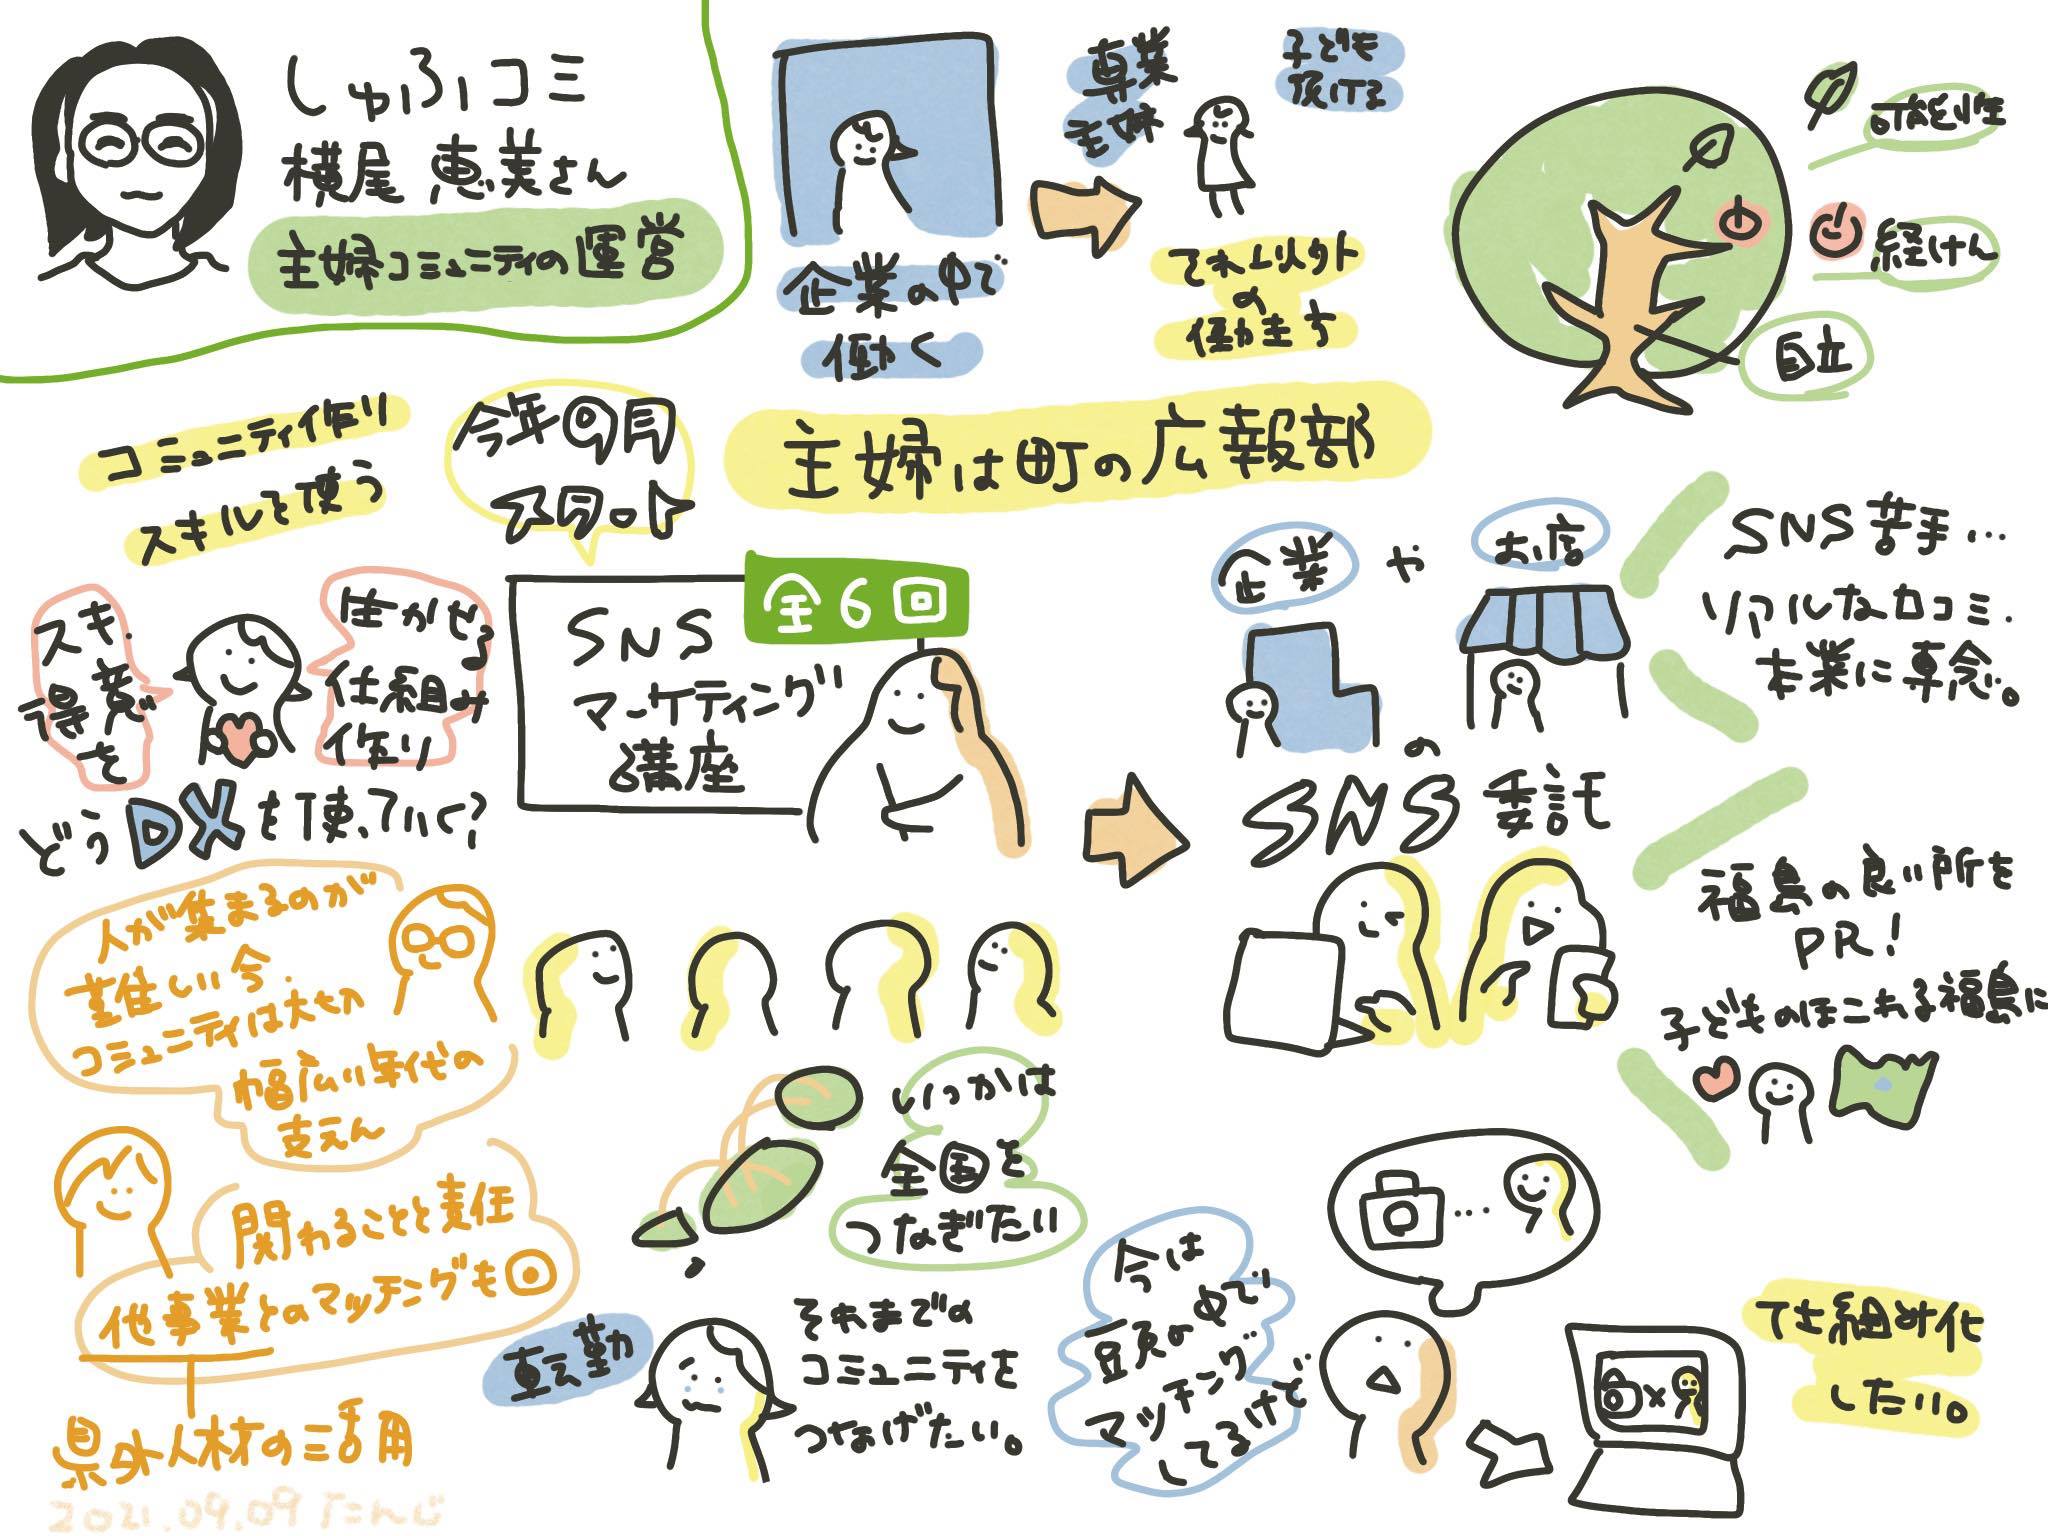 しゅふコミ
横尾 恵美さん
主婦コミュニティの運営
企業の中で
働く
専業
主婦
子ども
預ける
それ以外
の
働き方
可能性
経けん
自立
コミュニティ作り
スキルを使う
今年9月
スタート
主婦は町の広報部
スキ・
得意
を
生かせる
仕組み
作り
どうDXを使っていく?
SNS
マーケティング
講座
全6回
企業や
お店
の
SNS委託
SNS苦手…
リアルな口コミ.
本業に専念。
福島の良い所を
PR!
子どものほこれる福島に
人が集まるのが
難しい今.
コミュニティは大せつ
幅広い年代の
支えん
関わることと責任
他事業とのマッチングも◎
県外人材の活用
いつかは
全国を
つなぎたい
転勤
それまでの
コミュニティを
つなげたい。
今は
豆原の中で
マッチング
してるけど…
仕組み化
したい。
2021.09.09 たんじ